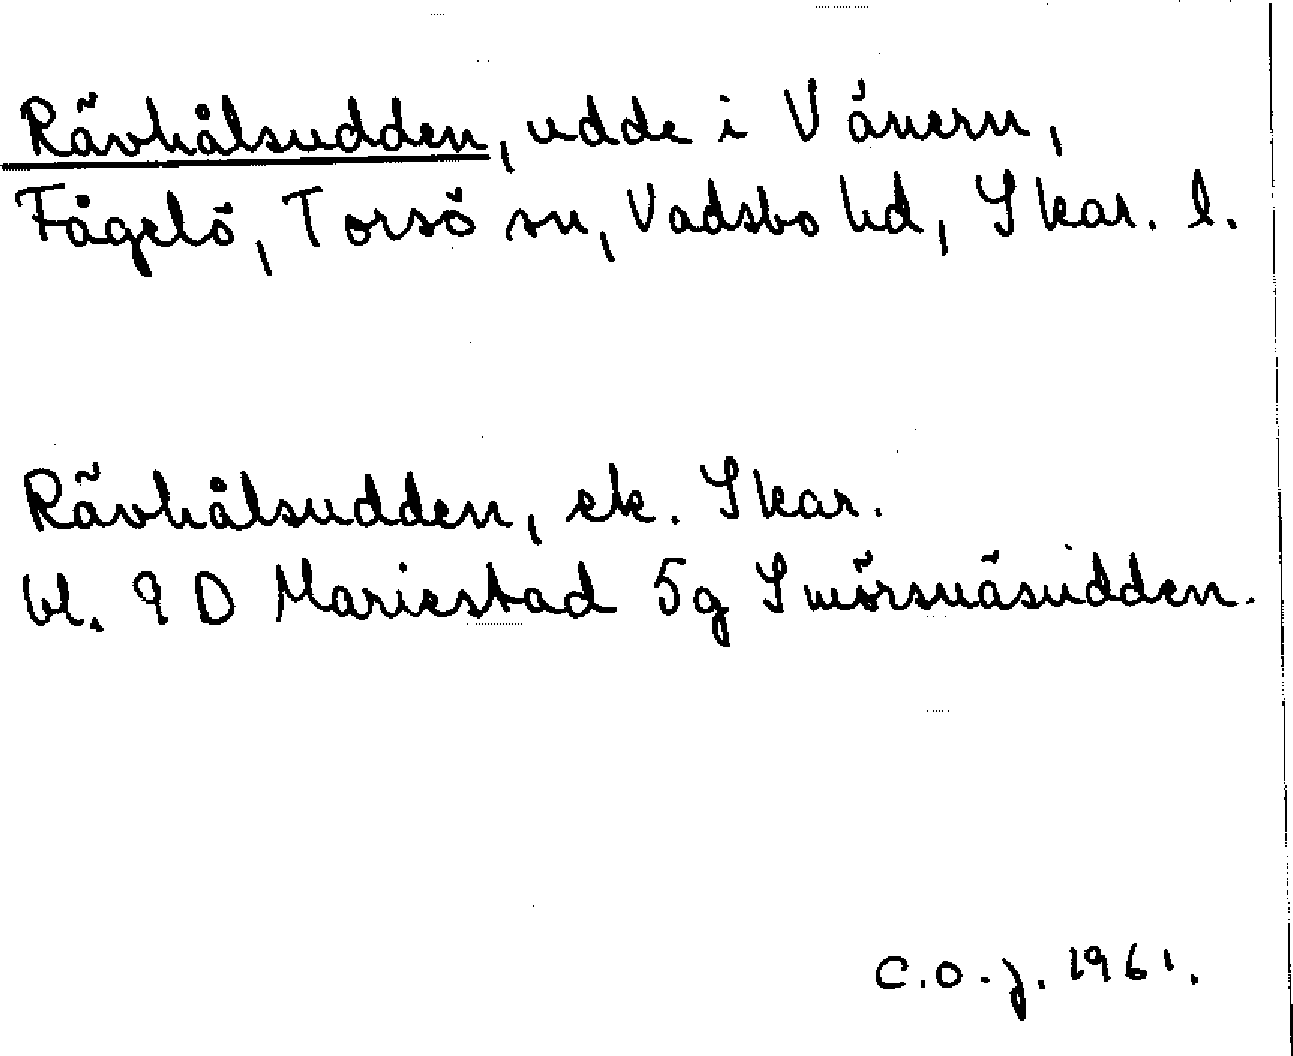 Rävhålsudden, udde i Vänern,
Fågelö, Torsö sn, Vadsbo hd, Skar. l.
Rävhålsudden, ek. Skar.
bl. 9 D Mariestad 5g Smörsnäsudden.
C.O-j. 1961.